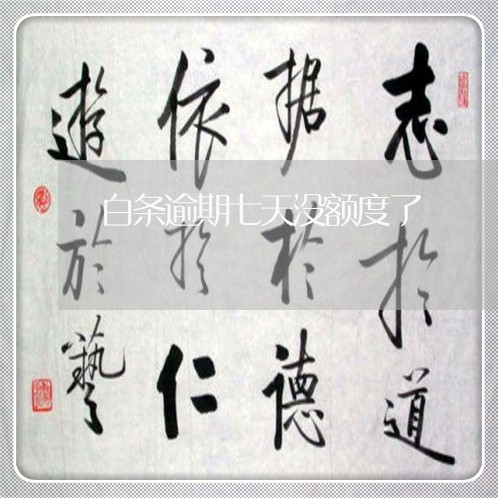 志於道
据於德
依於仁
遊於藝
白条逾期七天没额度了